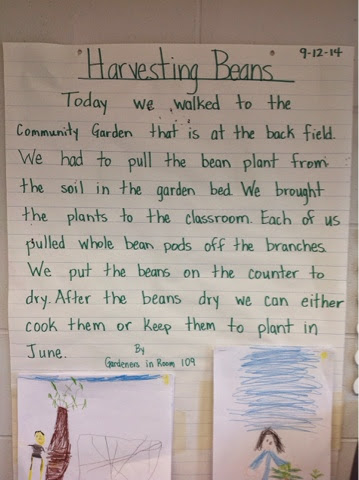 9-12-14
Harvesting Beans
Today we walked to the
Community Garden that is at the back field.
We had to pull the bean plant from
the soil in the garden bed. We brought
the plants to the classroom. Each of us
pulled whole bean pods off the branches.
We put the beans on the counter to
dry. After the beans dry we can either
cook them or keep them to plant in
June.
By
Gardeners in Room 109